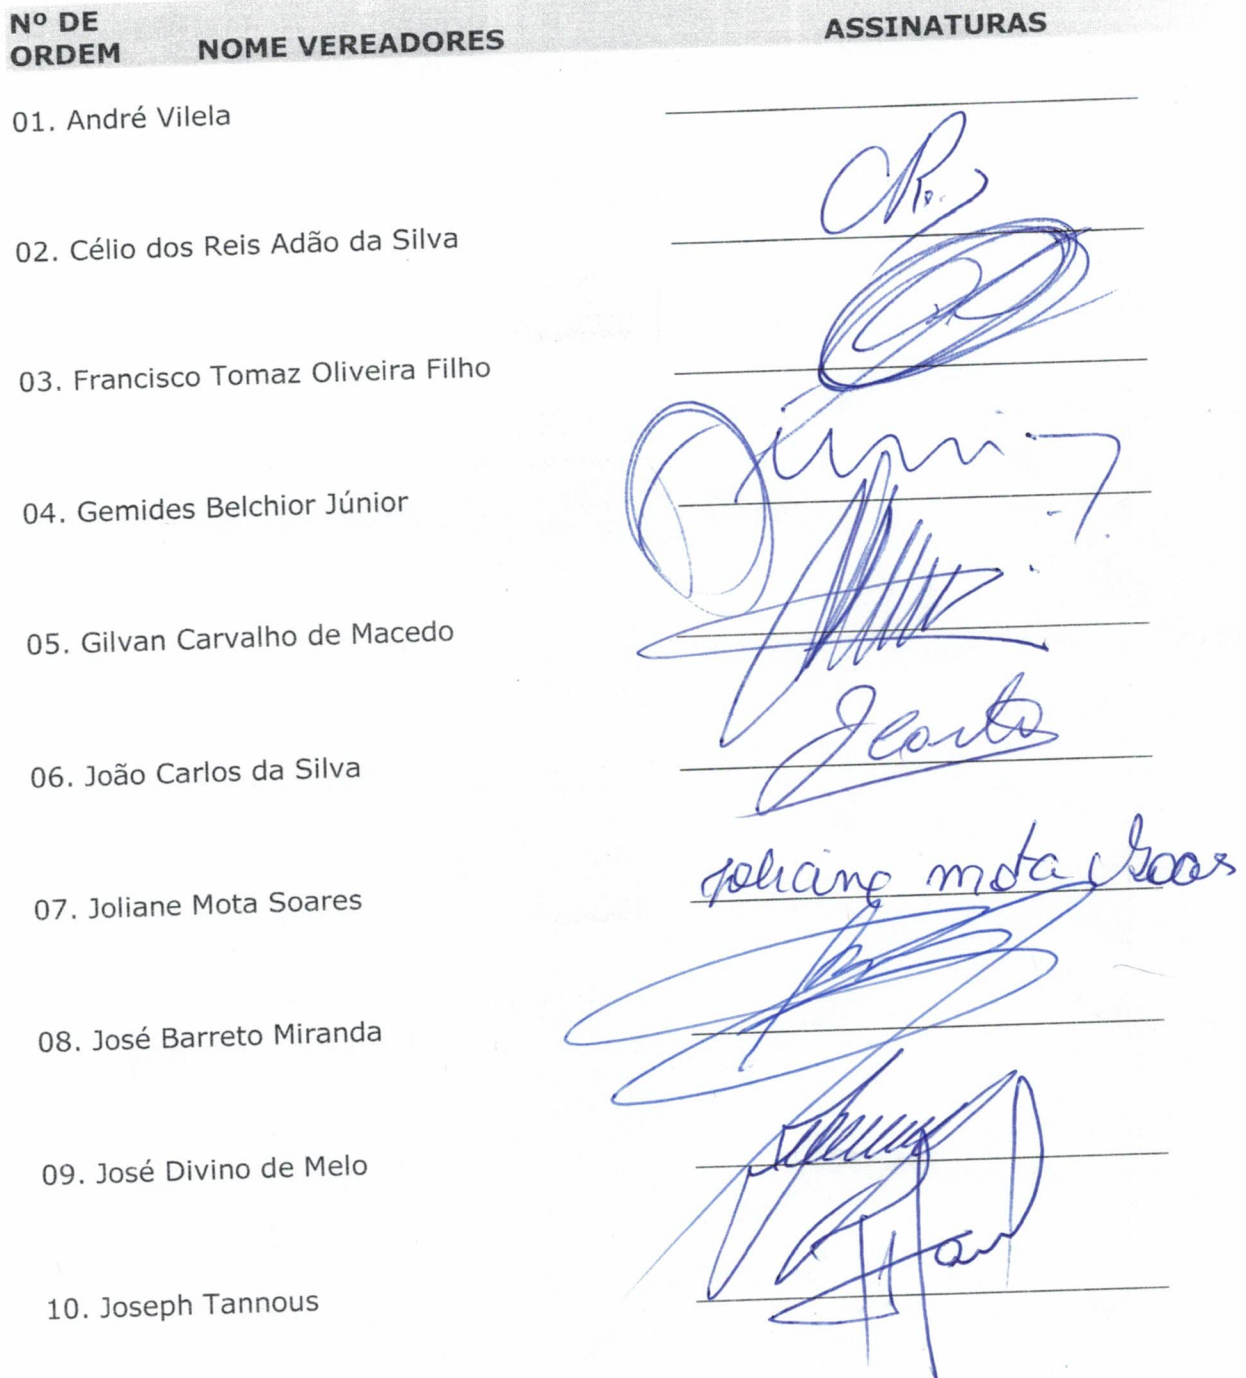 Nº DE
ORDEM NOME VEREADORES ASSINATURAS
01. André Vilela
02. Célio dos Reis Adão da Silva
03. Francisco Tomaz Oliveira Filho
04. Gemides Belchior Júnior
05. Gilvan Carvalho de Macedo
06. João Carlos da Silva
07. Joliane Mota Soares Joliane mota Soares
08. José Barreto Miranda
09. José Divino de Melo
10. Joseph Tannous